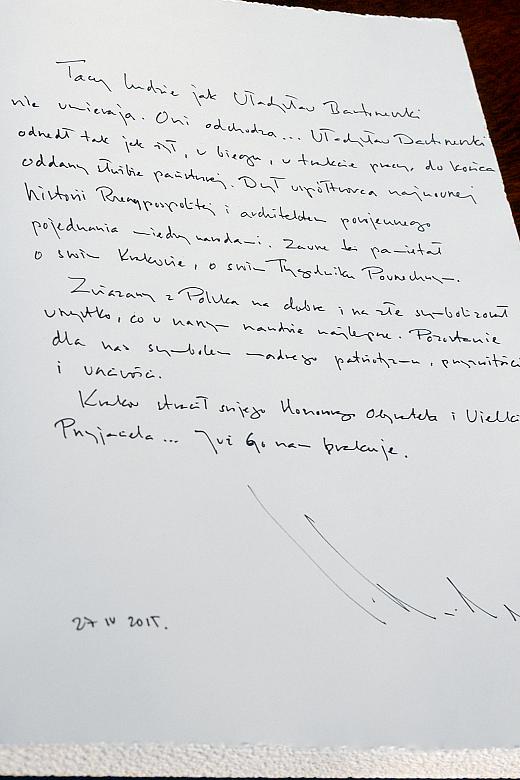 Tacy ludzie jak Władysław Bartoszewski
nie umierają. Oni odchodzą... Władysław Bartoszewski
odszedł tak jak żył, w biegu, w trakcie pracy, do końca
oddany służbie państwowej. Był współtwórcą najnowszej
historii Rzeczypospolitej i architektem powojennego
pojednania między narodami. Zawsze też pamiętał
o swoim Krakowie, o swoim Tygodniku Powszechnym.
Związany z Polską na dobre i na złe symbolizował
wszystko, co w naszym narodzie najlepsze. Pozostanie
dla nas symbolem mądrego patriotyzmu, przyzwoitości
i uczciwości.
Kraków stracił swojego Honorowego Obywatela i Wielki
Przyjaciela... Już Go nam brakuje.
27 IV 2015.